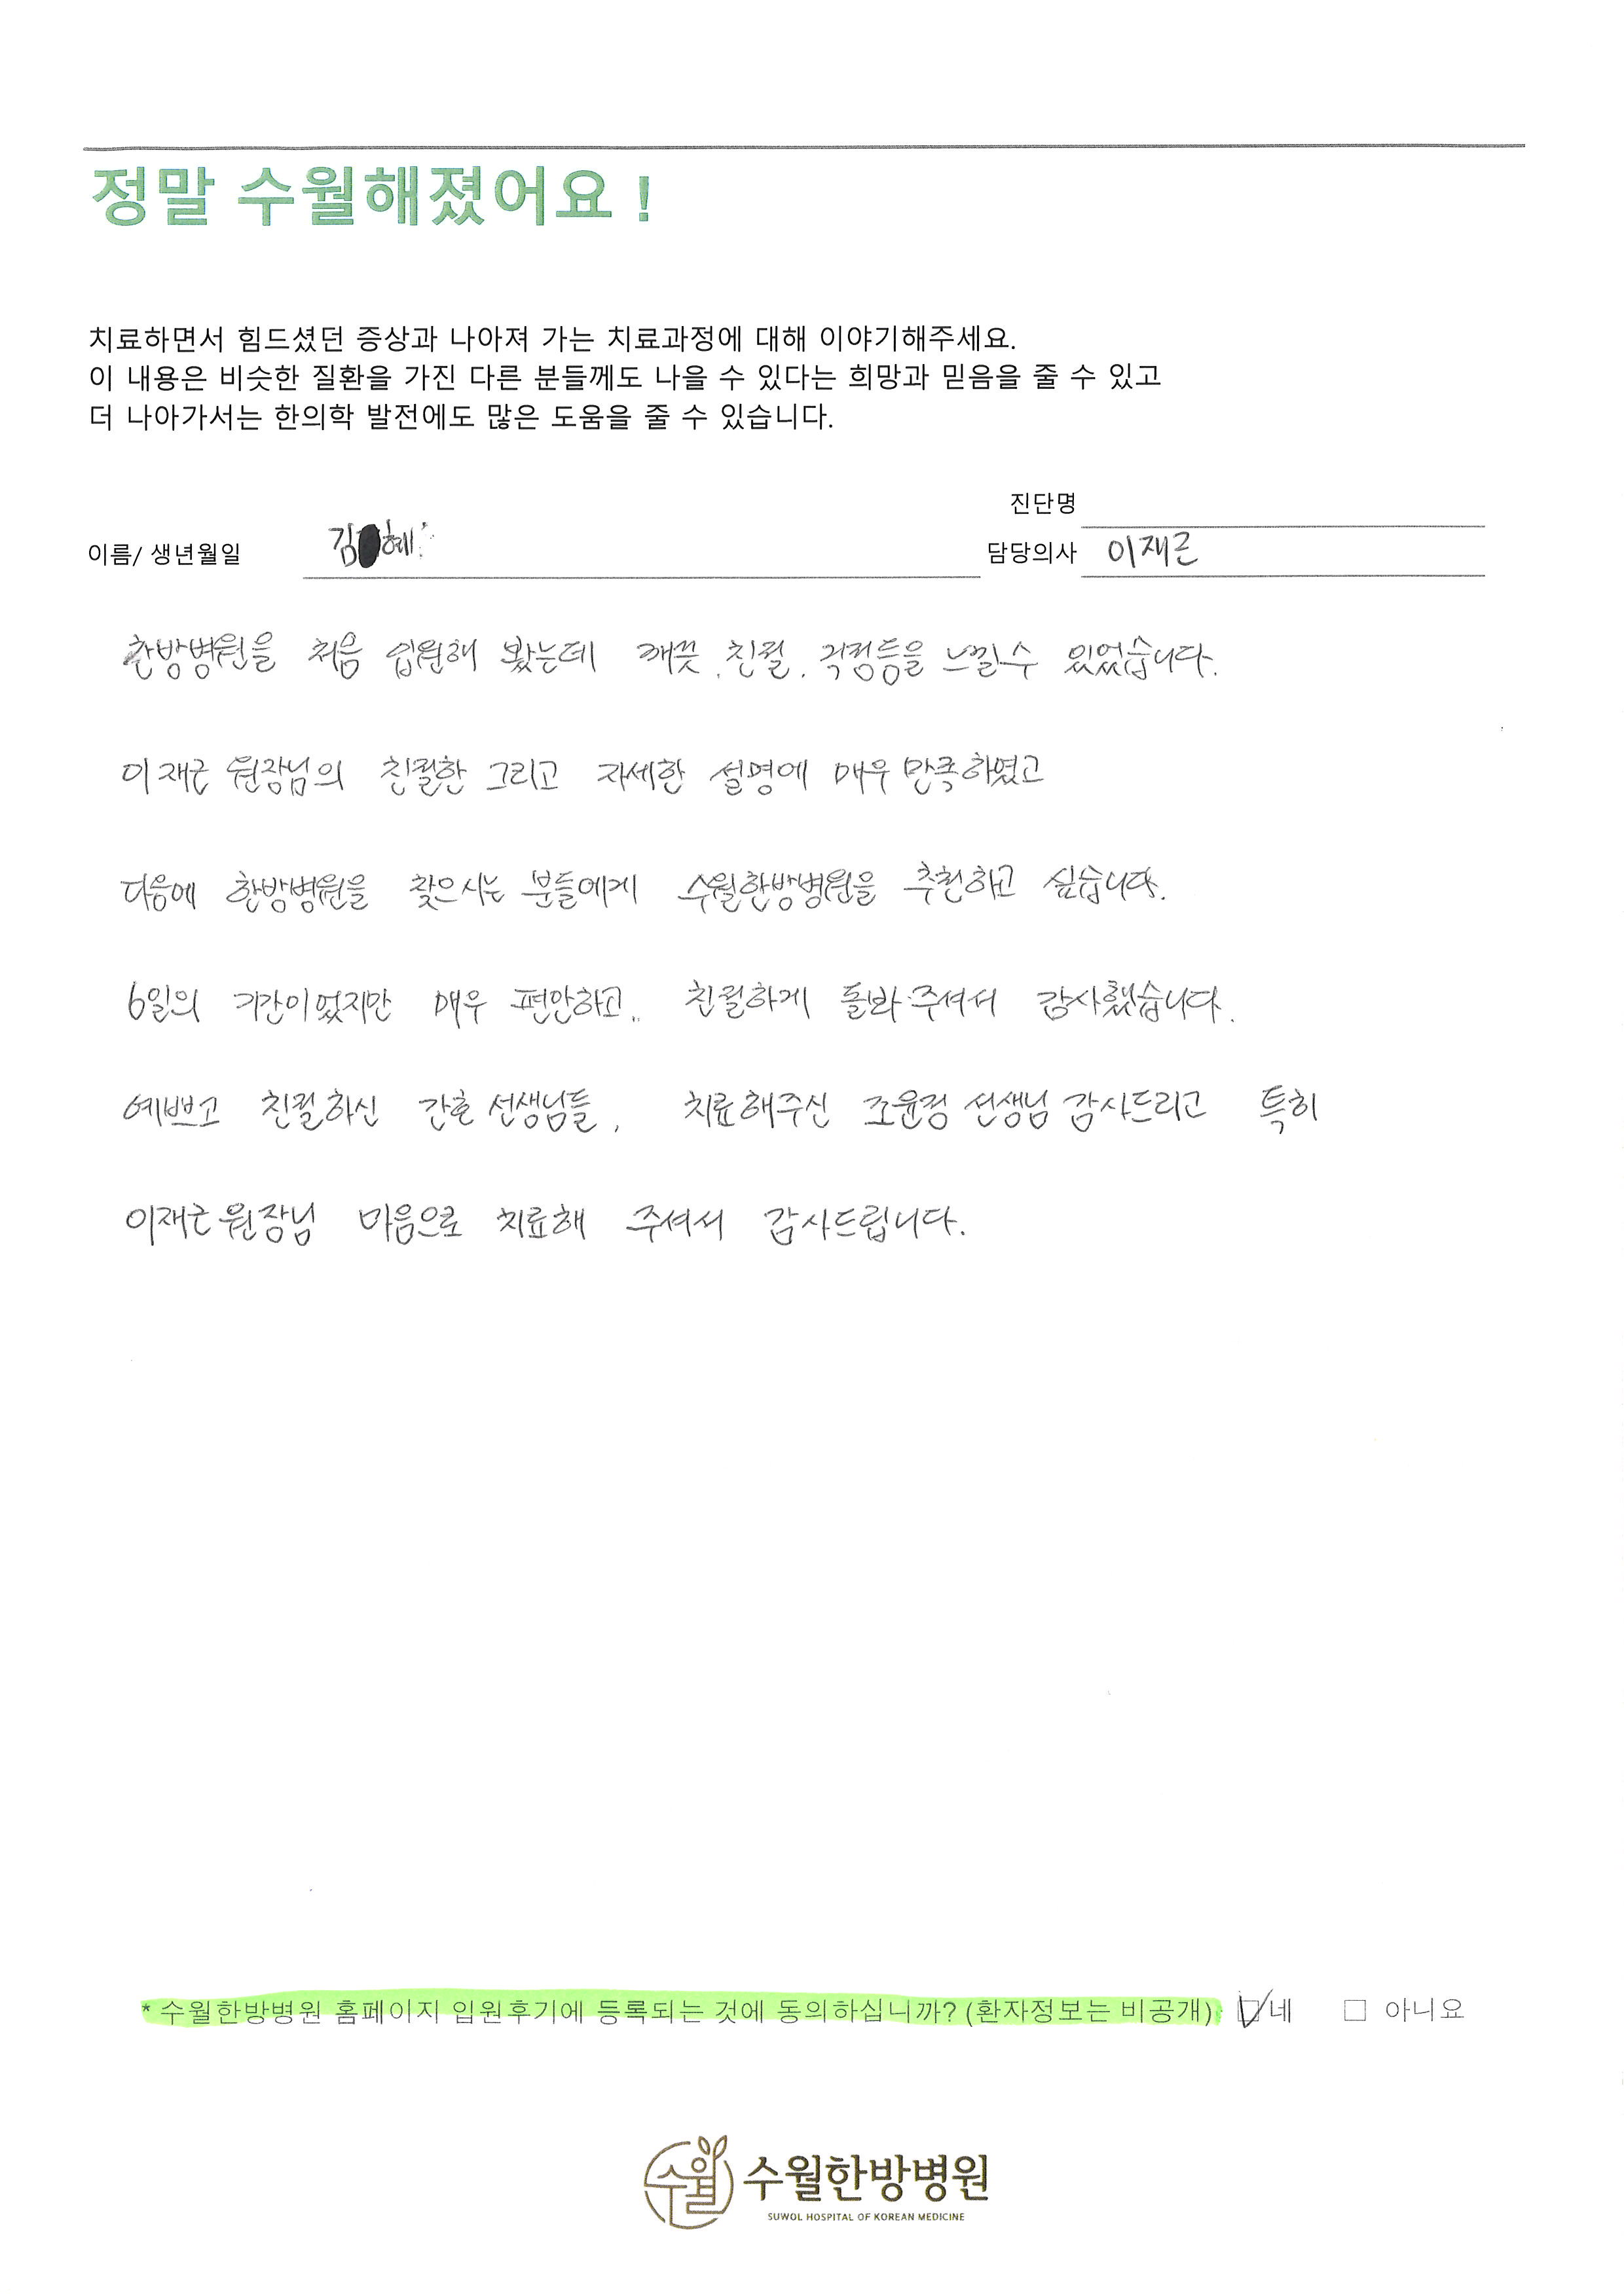 정말 수월해졌어요 !
치료하면서 힘드셨던 증상과 나아져 가는 치료과정에 대해 이야기해주세요.
이 내용은 비슷한 질환을 가진 다른 분들께도 나을 수 있다는 희망과 믿음을 줄 수 있고
더 나아가서는 한의학 발전에도 많은 도움을 줄 수 있습니다.
진단명
이름/ 생년월일 김 혜 담당의사 이재근
한방병원을 처음 입원해 봤는데 깨끗, 친절, 걱정등을 느낄수 있었습니다.
이재근 원장님의 친절한 그리고 자세한 설명에 매우 만족하였고
다음에 한방병원을 찾으시는 분들에게 수월한방병원을 추천하고 싶습니다.
6일의 기간이었지만 매우 편안하고, 친절하게 돌봐주셔서 감사했습니다.
예쁘고 친절하신 간호 선생님들, 치료해주신 조윤정 선생님 감사드리고 특히
이재근 원장님 마음으로 치료해 주셔서 감사드립니다.
* 수월한방병원 홈페이지 입원후기에 등록되는 것에 동의하십니까? (환자정보는 비공개) 네 아니요
수월 수월한방병원
SUWOL HOSPITAL OF KOREAN MEDICINE